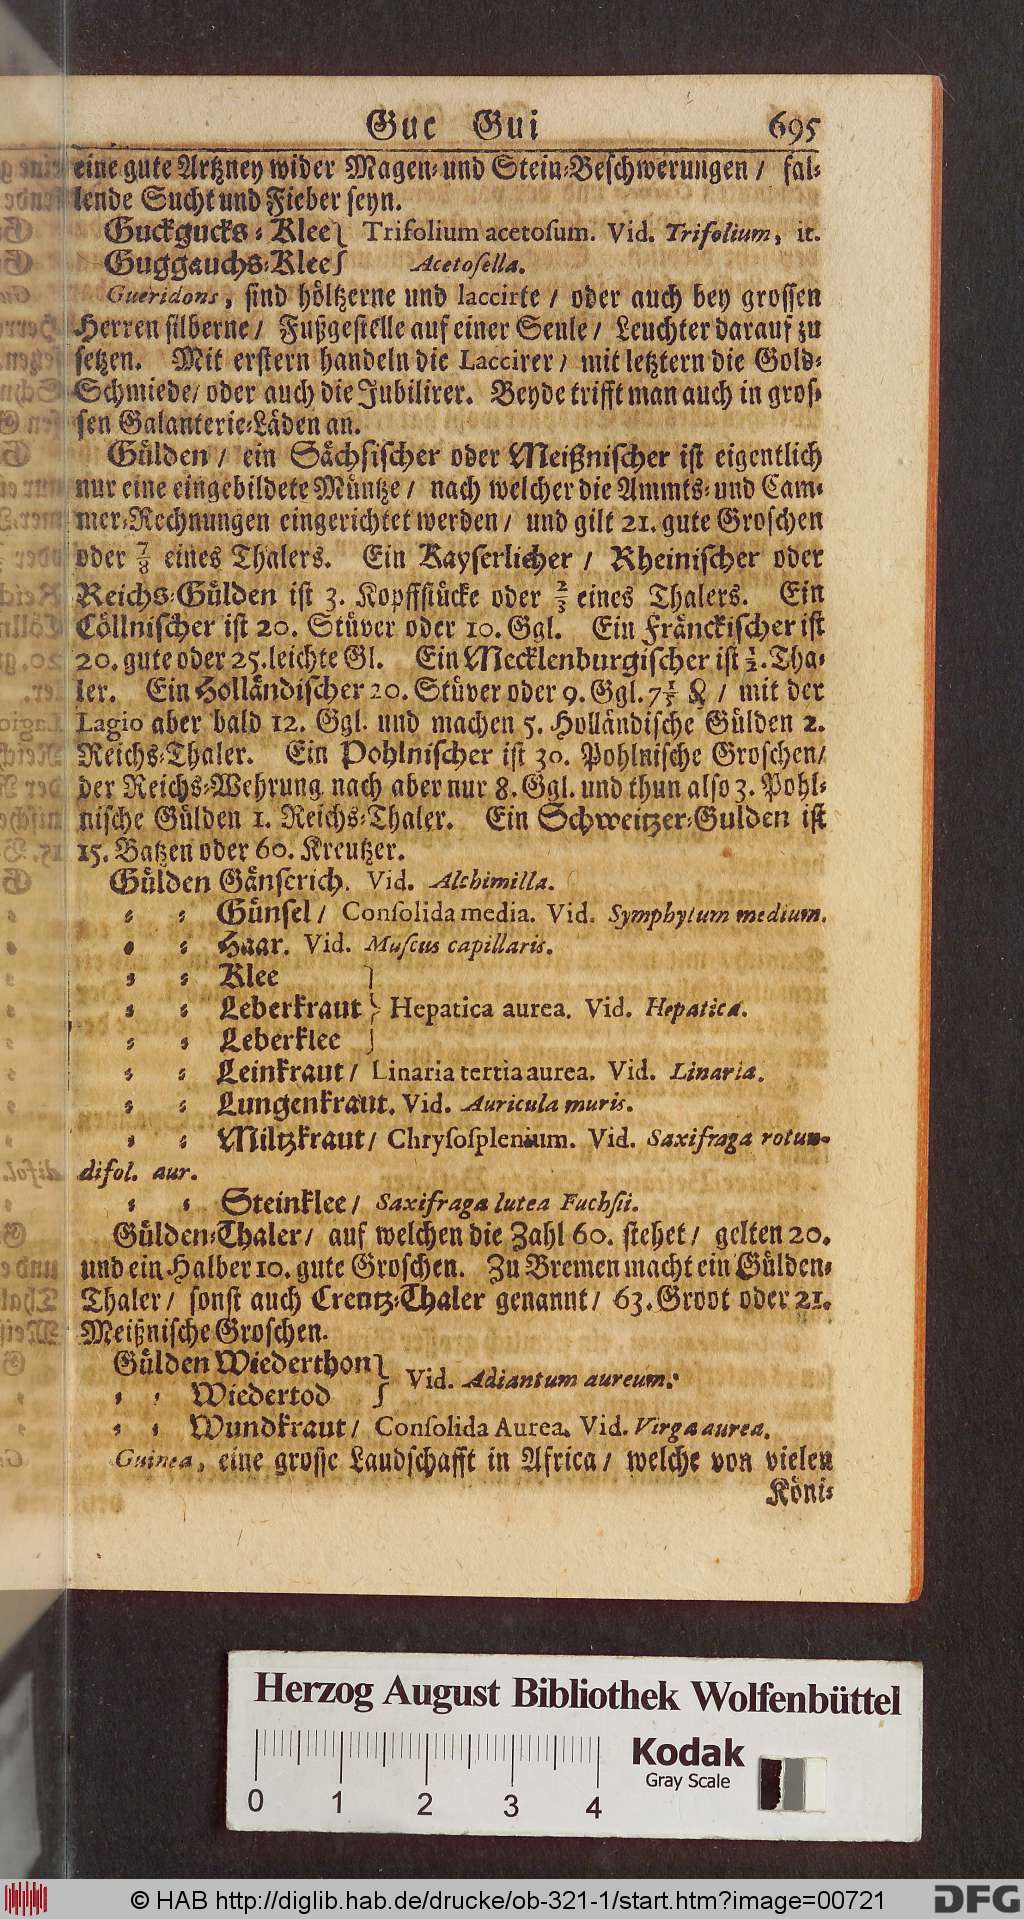 Guc Gui 695
eine gute Artzney wider Magen- und Stein-Beschwerungen / fal-
lende Sucht und Fieber seyn.
Guckgucks-Klee } Trifolium acetosum. Vid. Trifolium, it.
Guggauchs-Klee } Acetosella.
Gueridons, sind höltzerne und laccirte / oder auch bey grossen
Herren silberne / Fußgestelle auf einer Seule / Leuchter darauf zu
setzen. Mit erstern handeln die Laccirer / mit letztern die Gold-
Schmiede / oder auch die Jubilirer. Beyde trifft man auch in gros-
sen Galanterie-Läden an.
Gülden / ein Sächsischer oder Meißnischer ist eigentlich
nur eine eingebildete Müntze / nach welcher die Ammts- und Cam-
mer-Rechnungen eingerichtet werden / und gilt 21. gute Groschen
oder 7/8 eines Thalers. Ein Kayserlicher / Rheinischer oder
Reichs-Gülden ist 3. Kopffstücke oder 2/3 eines Thalers. Ein
Cöllnischer ist 20. Stüver oder 10. Ggl. Ein Fränckischer ist
20. gute oder 25. leichte Gl. Ein Mecklenburgischer ist 1/2. Tha-
ler. Ein Holländischer 20. Stüver oder 9. Ggl. 7 1/5 ₰ / mit der
Lagio aber bald 12. Ggl. und machen 5. Holländische Gülden 2.
Reichs-Thaler. Ein Pohlnischer ist 30. Pohlnische Groschen /
der Reichs-Wehrung nach aber nur 8. Ggl. und thun also 3. Pohl-
nische Gülden 1. Reichs-Thaler. Ein Schweitzer-Gulden ist
15. Batzen oder 60. Kreutzer.
Gülden Gänserich. Vid. Alchimilla.
- - Günsel / Consolida media. Vid. Symphytum medium.
- - Haar. Vid. Muscus capillaris.
- - Klee }
- - Leberkraut } Hepatica aurea. Vid. Hepatica.
- - Leberklee }
- - Leinkraut / Linaria tertia aurea. Vid. Linaria.
- - Lungenkraut. Vid. Auricula muris.
- - Miltzkraut / Chrysosplenium. Vid. Saxifraga rotun-
difol. aur.
- - Steinklee / Saxifraga lutea Fuchsii.
Gülden-Thaler / auf welchen die Zahl 60. stehet / gelten 20.
und ein Halber 10. gute Groschen. Zu Bremen macht ein Gülden-
Thaler / sonst auch Creutz-Thaler genannt / 63. Groot oder 21.
Meißnische Groschen.
Gülden Wiederthon } Vid. Adiantum aureum.
- - Wiedertod }
- - Wundkraut / Consolida Aurea. Vid. Virga aurea.
Guinea, eine grosse Landschafft in Africa / welche von vielen
Köni-
Herzog August Bibliothek Wolfenbüttel
0 1 2 3 4
Kodak
Gray Scale
© HAB http://diglib.hab.de/drucke/ob-321-1/start.htm?image=00721
DFG